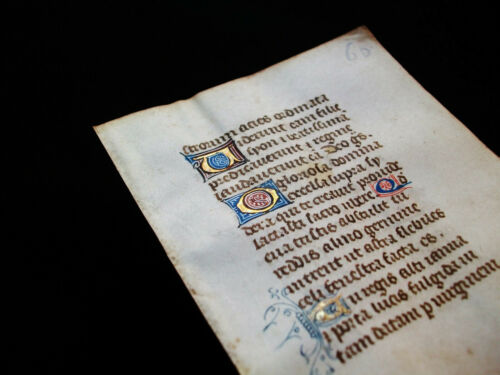 strorum acies ordinata
Viderunt eam filie
syon et beatissima
predicaverunt et regine
laudaverunt ea Deo grs.
O gloriosa domina
excelsa supra sy
dera qui te creavit provide
lactasti sacro ubere Q
eva tristis abstulit tu
reddis almo germine
intrent ut astra flebiles
celi fenestra facta es.
Tu regis alti ianua
et porta lucis fulgida vi
tam datam p virginem